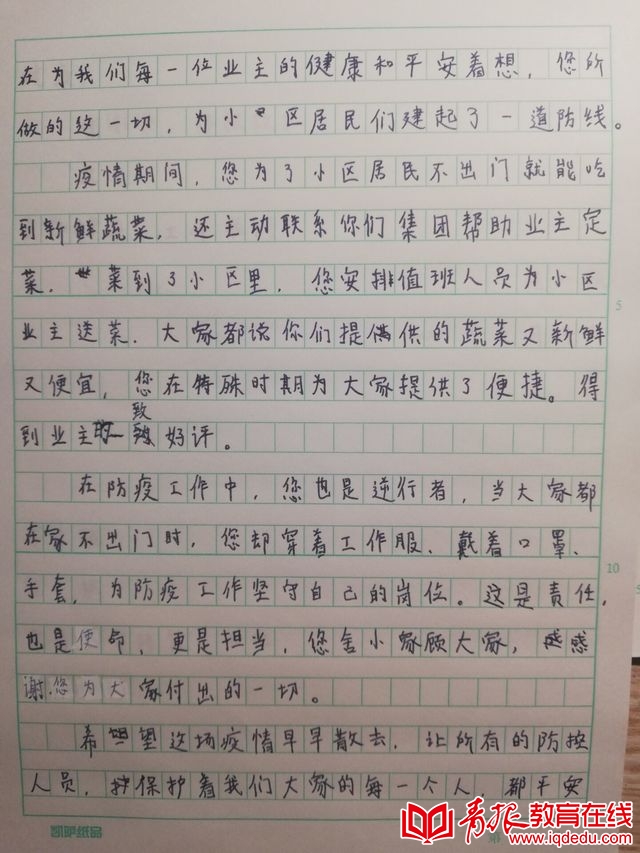 在为我们每一位业主的健康和平安着想，您所
做的这一切，为小区居民们建起了一道防线。
疫情期间，您为了小区居民不出门就能吃
到新鲜蔬菜，还主动联系你们集团帮助业主定
菜，菜到了小区里，您安排值班人员为小区
业主送菜，大家都说你们提供的蔬菜又新鲜
又便宜，您在特殊时期为大家提供了便捷。得
到业主的一致好评。
在防疫工作中，您也是逆行者，当大家都
在家不出门时，您却穿着工作服、戴着口罩、
手套，为防疫工作坚守自己的岗位。这是责任，
也是使命，更是担当，您舍小家顾大家，感
谢您为大家付出的一切。
希望这场疫情早早散去，让所有的防控
人员，保护着我们大家的每一个人，都平安
5
10
凯萨纸品
青报教育在线
www.iqdedu.com